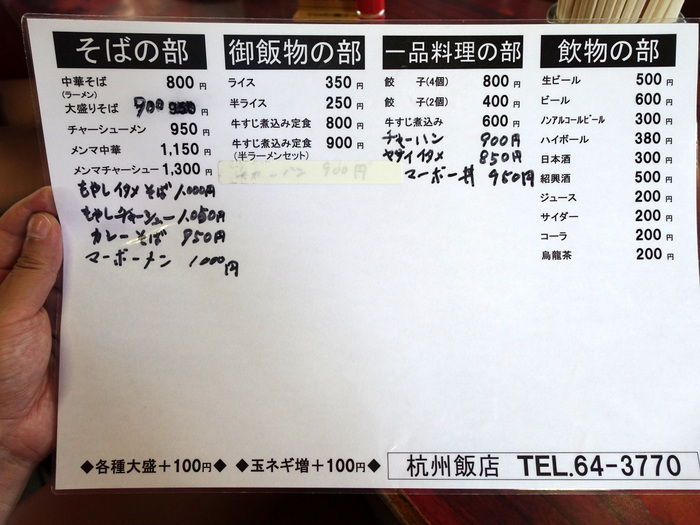 そばの部
中華そば 800円
(ラーメン)
大盛りそば 900円
チャーシューメン 950円
メンマ中華 1,150円
メンマチャーシュー 1,300円
もやしイタメそば 1,000円
もやしチャーシュー 1,050円
カレーそば 850円
マーボーメン 1000円
御飯物の部
ライス 350円
半ライス 250円
牛すじ煮込み定食 800円
牛すじ煮込み定食 900円
(半ラーメンセット)
一品料理の部
餃 子(4個) 800円
餃 子(2個) 400円
牛すじ煮込み 600円
チャーハン 900円
ヤサイイタメ 850円
マーボー丼 950円
飲物の部
生ビール 500円
ビール 600円
ノンアルコールビール 300円
ハイボール 380円
日本酒 300円
紹興酒 500円
ジュース 200円
サイダー 200円
コーラ 200円
烏龍茶 200円
◆各種大盛+100円◆ ◆玉ネギ増+100円◆
杭州飯店 TEL.64-3770